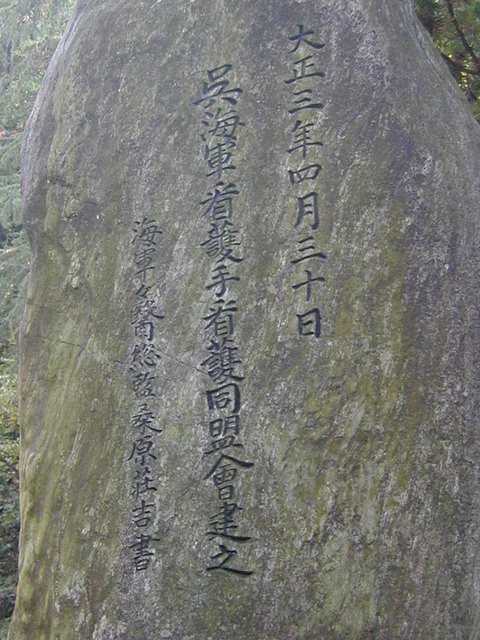 大正三年四月三十日
呉海軍看護手看護同盟會建之
海軍々醫総監桑原荘吉書